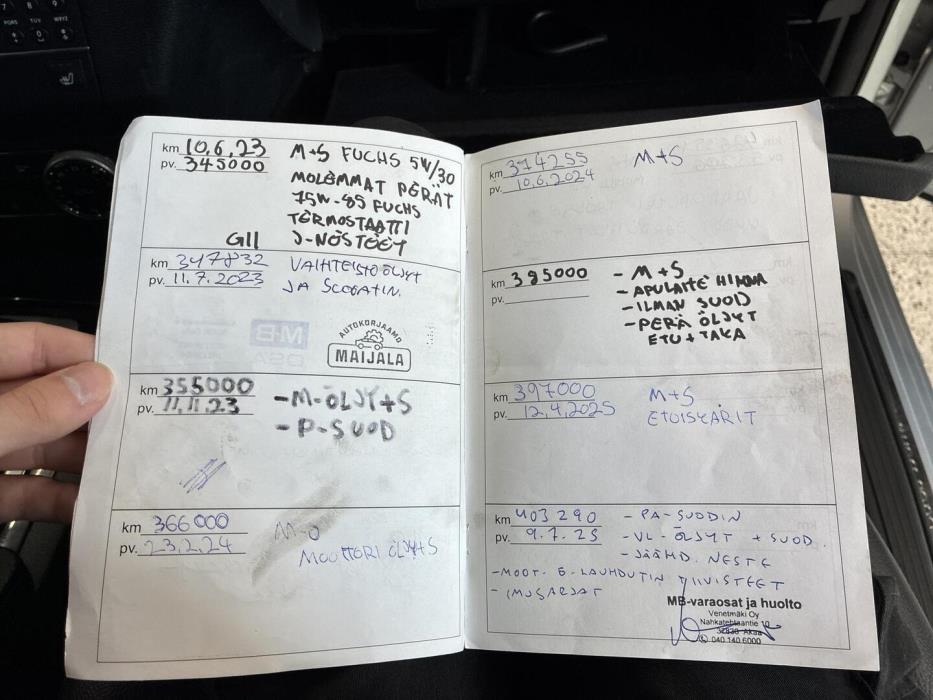 km 10.6.23
pv. 345000
M+S FUCHS 5W/30
MOLEMMAT PERÄT
75W-85 FUCHS
TERMOSTAATTI
G11 J-NESTEET
km 347832
pv. 11.7.2023
VAIHTEISTOÖLJYT
JA SUODATIN.
AUTOKORJAAMO
MAIJALA
km 355000
pv. 11.11.23
-M-ÖLJY+S
-P-SUOD
km 366000
pv. 23.2.24
M-O
MOOTTORI ÖLJY+S
km 374255
pv. 10.6.2024
M+S
km 385000
pv.
- M+S
- APULAITE HIHNA
- ILMAN SUOD
- PERÄ ÖLJYT
ETU + TAKA
km 397000
pv. 12.4.2025
M+S
ETUISKARIT
km 403290
pv. 9.7.25
- PA-SUODIN
- VL-ÖLJYT + SUOD.
- JÄÄHD. NESTE
- MOOT. Ö-LAUHDUTIN TIIVISTEET
- IMUSARJAT
MB-varaosat ja huolto
Venetmäki Oy
Nahkatehtaantie 10
Akaa
040 140 6000